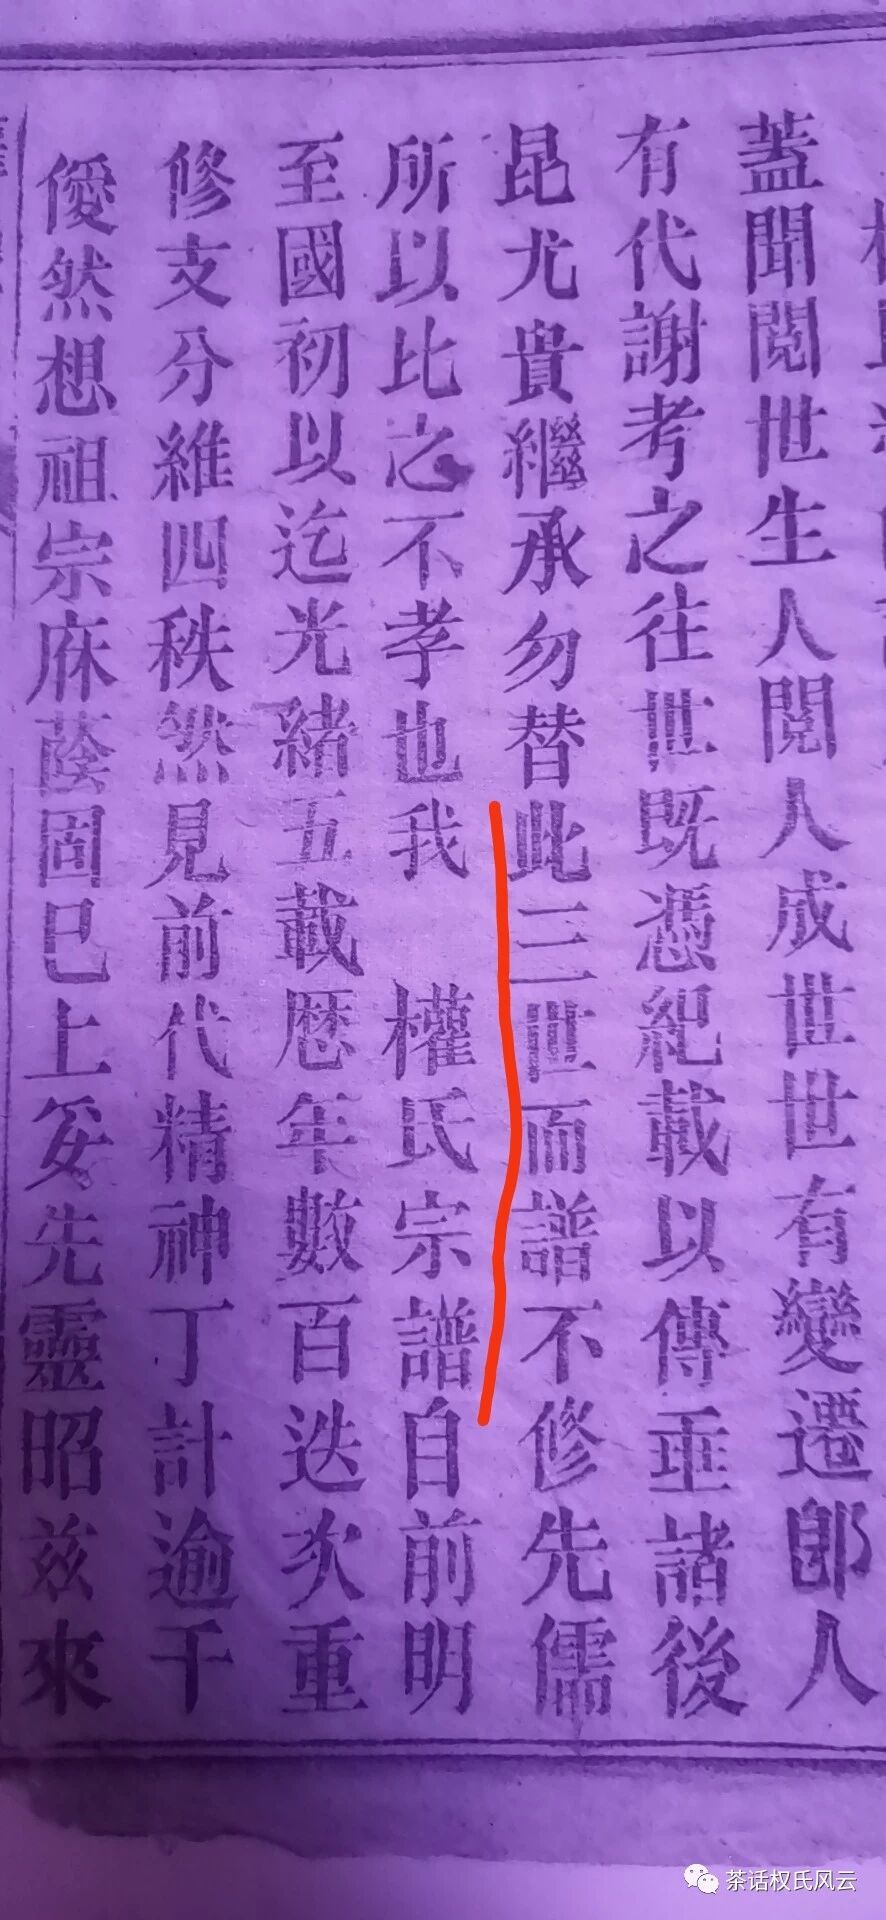 蓋聞閱世生人閱人成世世有變遷卽人
有代謝考之往世既憑紀載以傳垂諸後
昆尤貴繼承勿替此三世而譜不修先儒
所以比之不孝也我 權氏宗譜自前明
至國初以迄光緒五載歷年數百迭次重
修支分維四秩然見前代精神丁計逾千
僾然想祖宗庥蔭固已上妥先靈昭茲來
茶话权氏风云